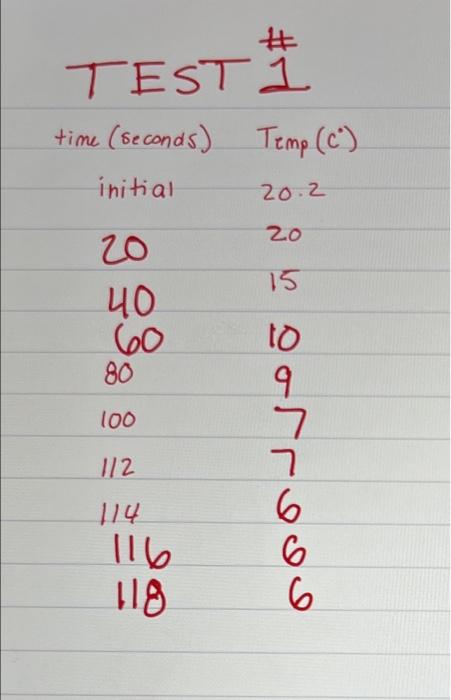 TEST #1
time (seconds) Temp (C°)
initial 20.2
20 20
40 15
60 10
80 9
100 7
112 7
114 6
116 6
118 6